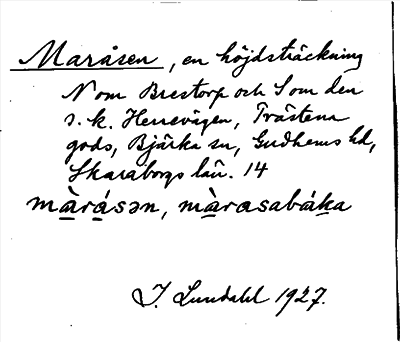 Maråsen, en höjdsträckning
N om Brestorp och S om den
s.k. Herrevägen, Trästena
gods, Bjärka sn, Gudhems hd,
Skaraborgs län. 14
màrásən, màrasabáka
J. Lundahl 1927.